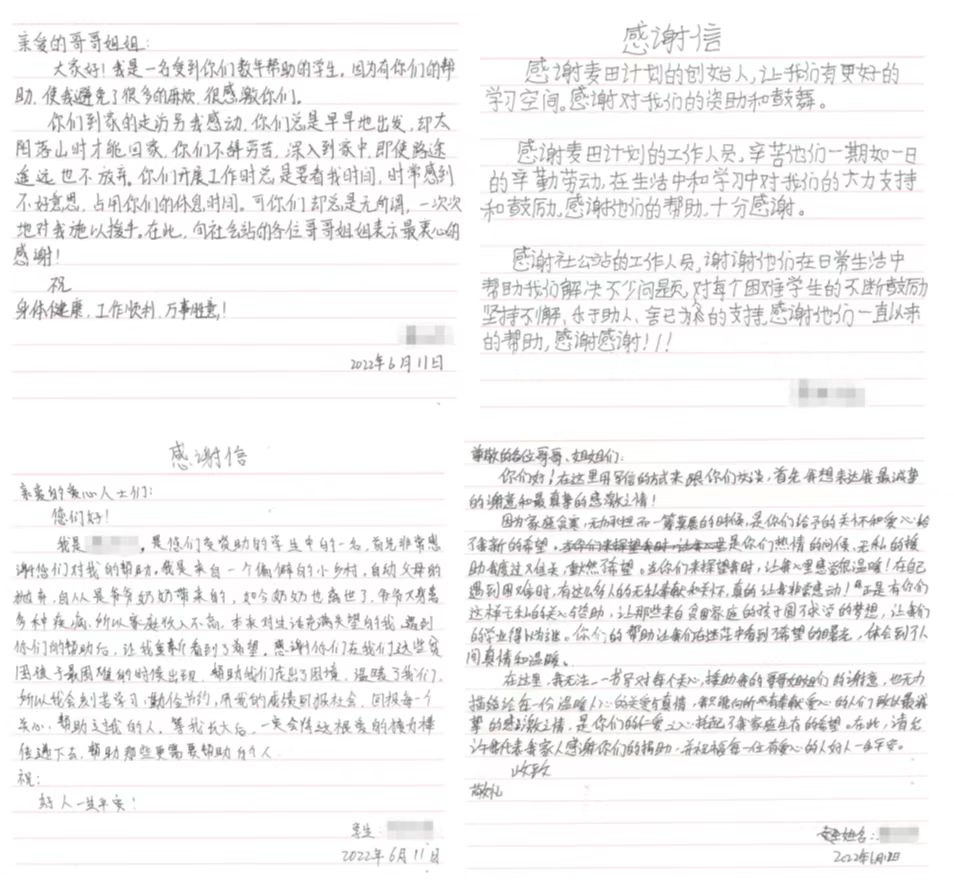 亲爱的哥哥姐姐:
大家好!我是一名受到你们数年帮助的学生。因为有你们的帮
助,使我避免了很多的麻烦,很感激你们。
你们到家的走访另我感动,你们总是早早地出发,却太
阳落山时才能回家,你们不辞劳苦,深入到家中,即使路途
遥远也不放弃。你们开展工作时总是要看我时间,时常感到
不好意思,占用你们的休息时间。可你们却总是无所谓,一次次
地对我施以援手。在此,向社会站的各位哥哥姐姐表示最衷心的
感谢!
祝
身体健康,工作顺利,万事胜意!
2022年6月11日
感谢信
感谢麦田计划的创始人,让我们有更好的
学习空间。感谢对我们的资助和鼓舞。
感谢麦田计划的工作人员,辛苦他们一期如一日
的辛勤劳动,在生活中和学习中对我们的大力支持
和鼓励,感谢他们的帮助,十分感谢。
感谢社公站的工作人员,谢谢他们在日常生活中
帮助我们解决不少问题,对每个困难学生的不断鼓励
坚持不懈、乐于助人、舍己为的支持,感谢他们一直以来
的帮助,感谢感谢!!!
感谢信
亲爱的爱心人士们:
您们好!
我是,是您们受资助的学生中的一名,首先非常感
谢您们对我的帮助。我是来自一个偏僻的小乡村,自幼父母的
抛弃,自从是爷爷奶奶带来的,如今奶奶也病世了,爷爷又身患
多种疾病,所以家庭收入不高,本来对生活充满失望的我,遇到
你们的帮助后,让我看到了希望。感谢你们在我们这些贫
困孩子最困难的时候出现,帮助我们走出了困境,温暖了我们,
所以我会刻苦学习,勤俭节约,用我的成绩回报社会,回报每一个
关心、帮助过我的人,等我长大后,一定会将这根爱的接力棒
传递下去,帮助那些更需要帮助的人。
祝:
好人一生平安!
学生:
2022年6月11日
尊敬的各位哥哥、姐姐们:
你们好!在这里用写信的方式来跟你们交谈,首先我想表达我最诚挚
的谢意和最真挚的感激之情!
因为家庭贫寒,无力承担而一筹莫展的时候,是你们给予的关怀和爱心给
了我新的希望。是你们热情的问候,无私的援
助,当你们来探望我时,让我心里感觉很温暖!在自己
遇到困难时,有这么多人的无私奉献和关怀,真的让我非常感动!正是有你们
这样无私的关心与帮助,让那些来自贫困家庭的孩子圆了求学的梦想,让我们
的学业得以为继。你们的帮助让我们在迷茫中看到了希望的曙光,体会到了人
间真情和温暖。
在这里,我无法一一书写对每个关心、援助我的的谢意,也无力
描绘论在一份温暖人心的关爱与真情,有爱心的人们致以最诚
挚的感激之情,是你们的仁爱之心托起了我家庭生存的希望。在此,请允
许我代表我家人感谢你们的援助,并祝福每一位有爱心的人好人一生平安。
此致
敬礼
姓名:
2022年6月12日